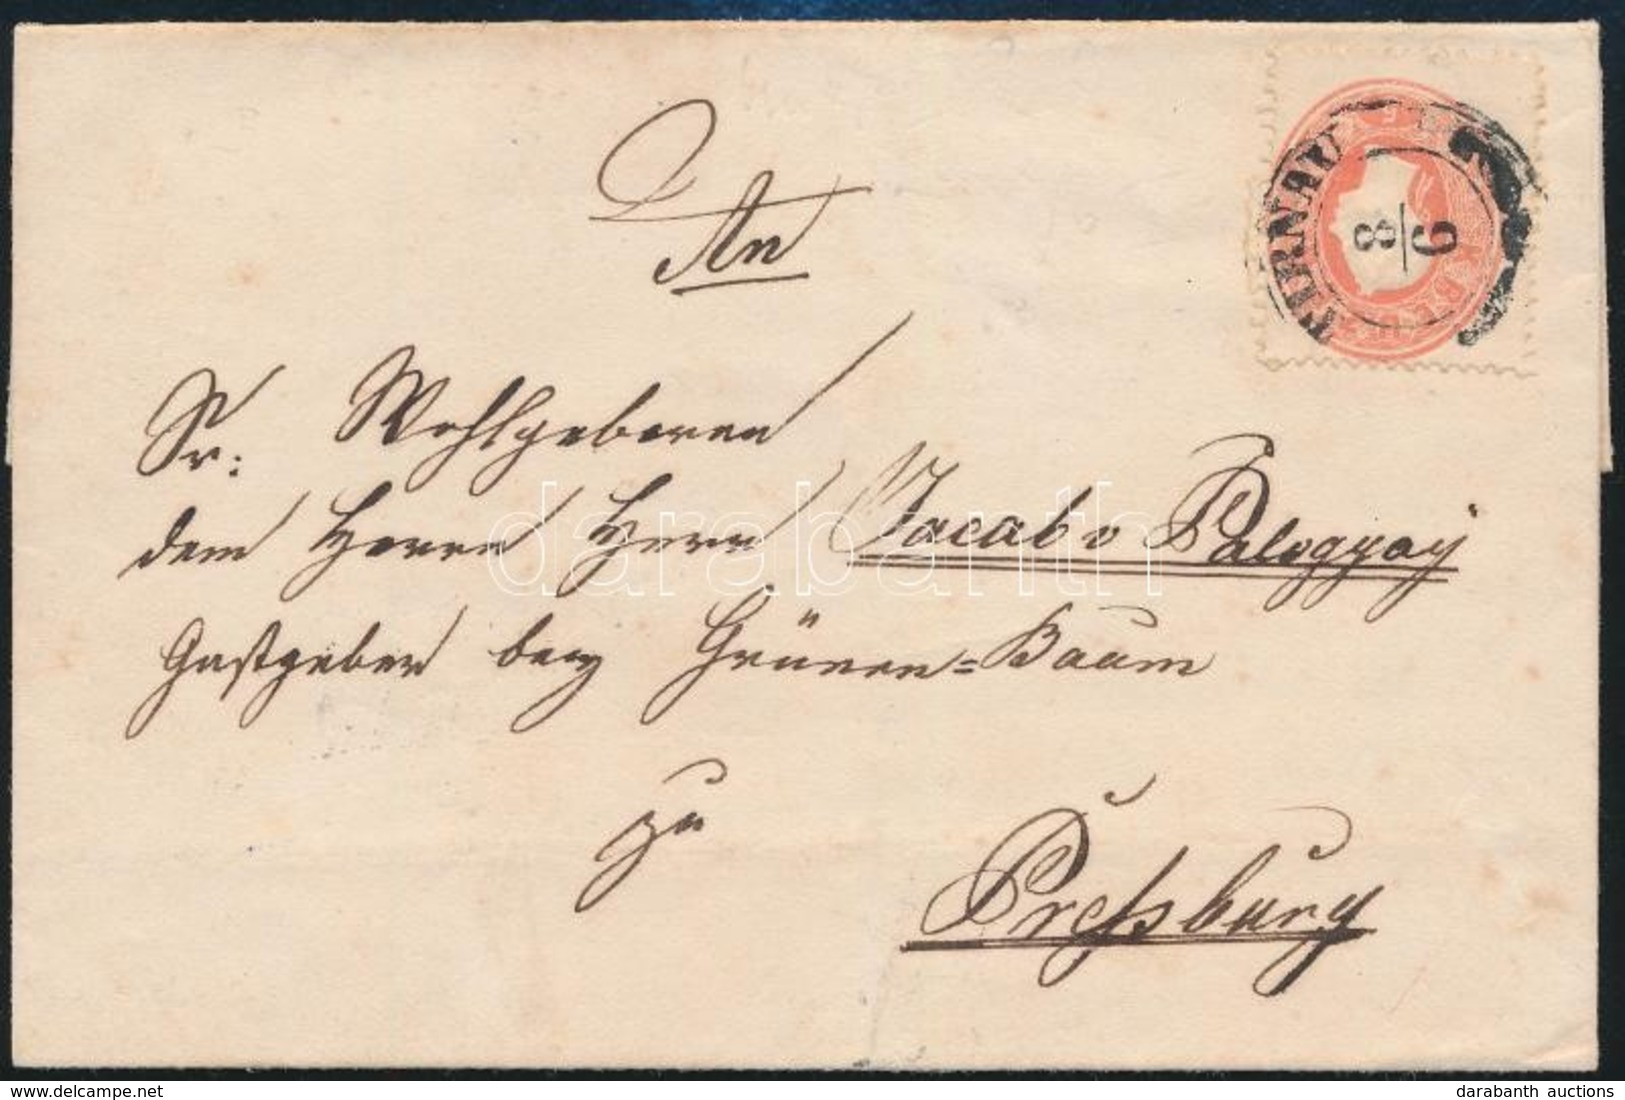 An
TIRNAU
6
8
Sr: Wohlgeboren
dem Herrn Herr Jacabo Palogyay
Gastgeber bey Grünen=Baum
zu
Presburg
darabanth
delcampe.net
darabanth auctions